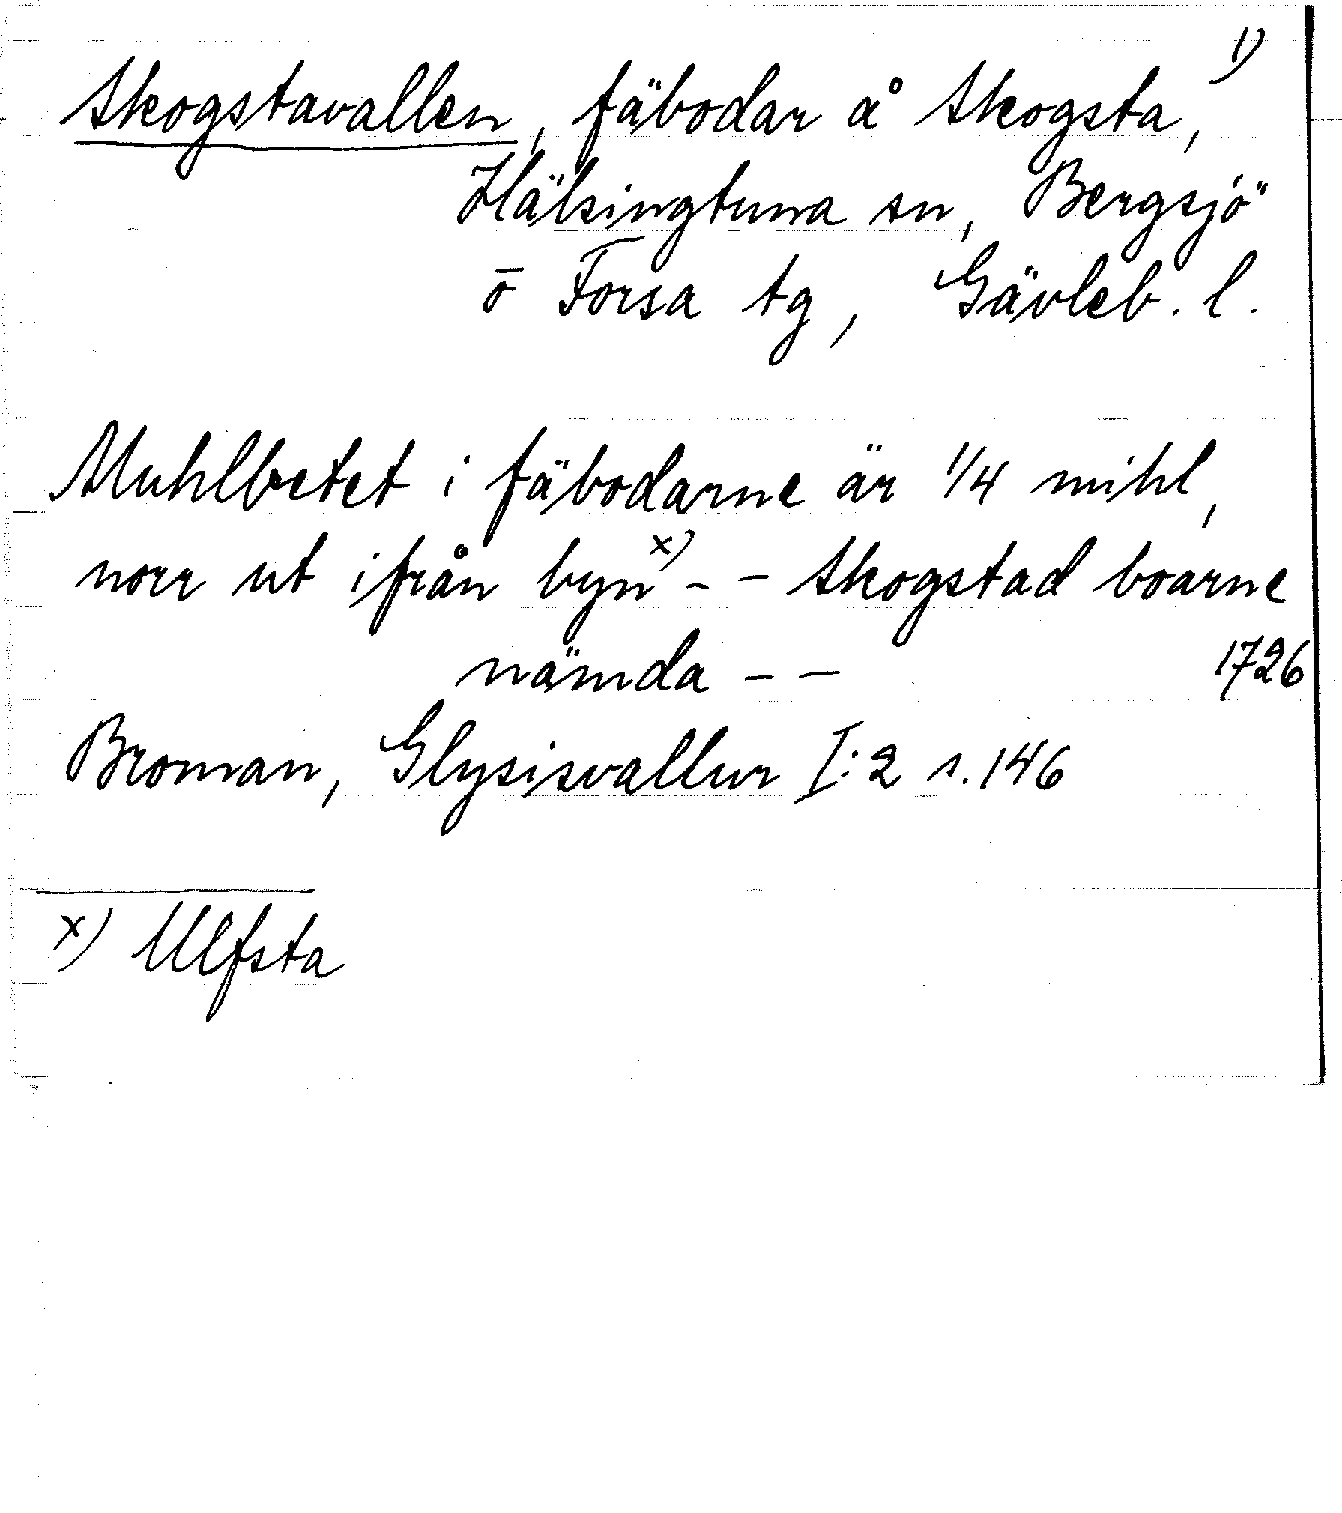 Skogstavallen, fäbodar å Skogsta, 1)
Hälsingtuna sn, Bergsjö
o Forsa tg, Gävleb. l.
Muhlbetet i fäbodarne är 1/4 mihl,
norr ut ifrån byn x) - - Skogstad boarne
nämda - - 1726
Broman, Glysisvallur I:2 s. 146
x) Ulfsta